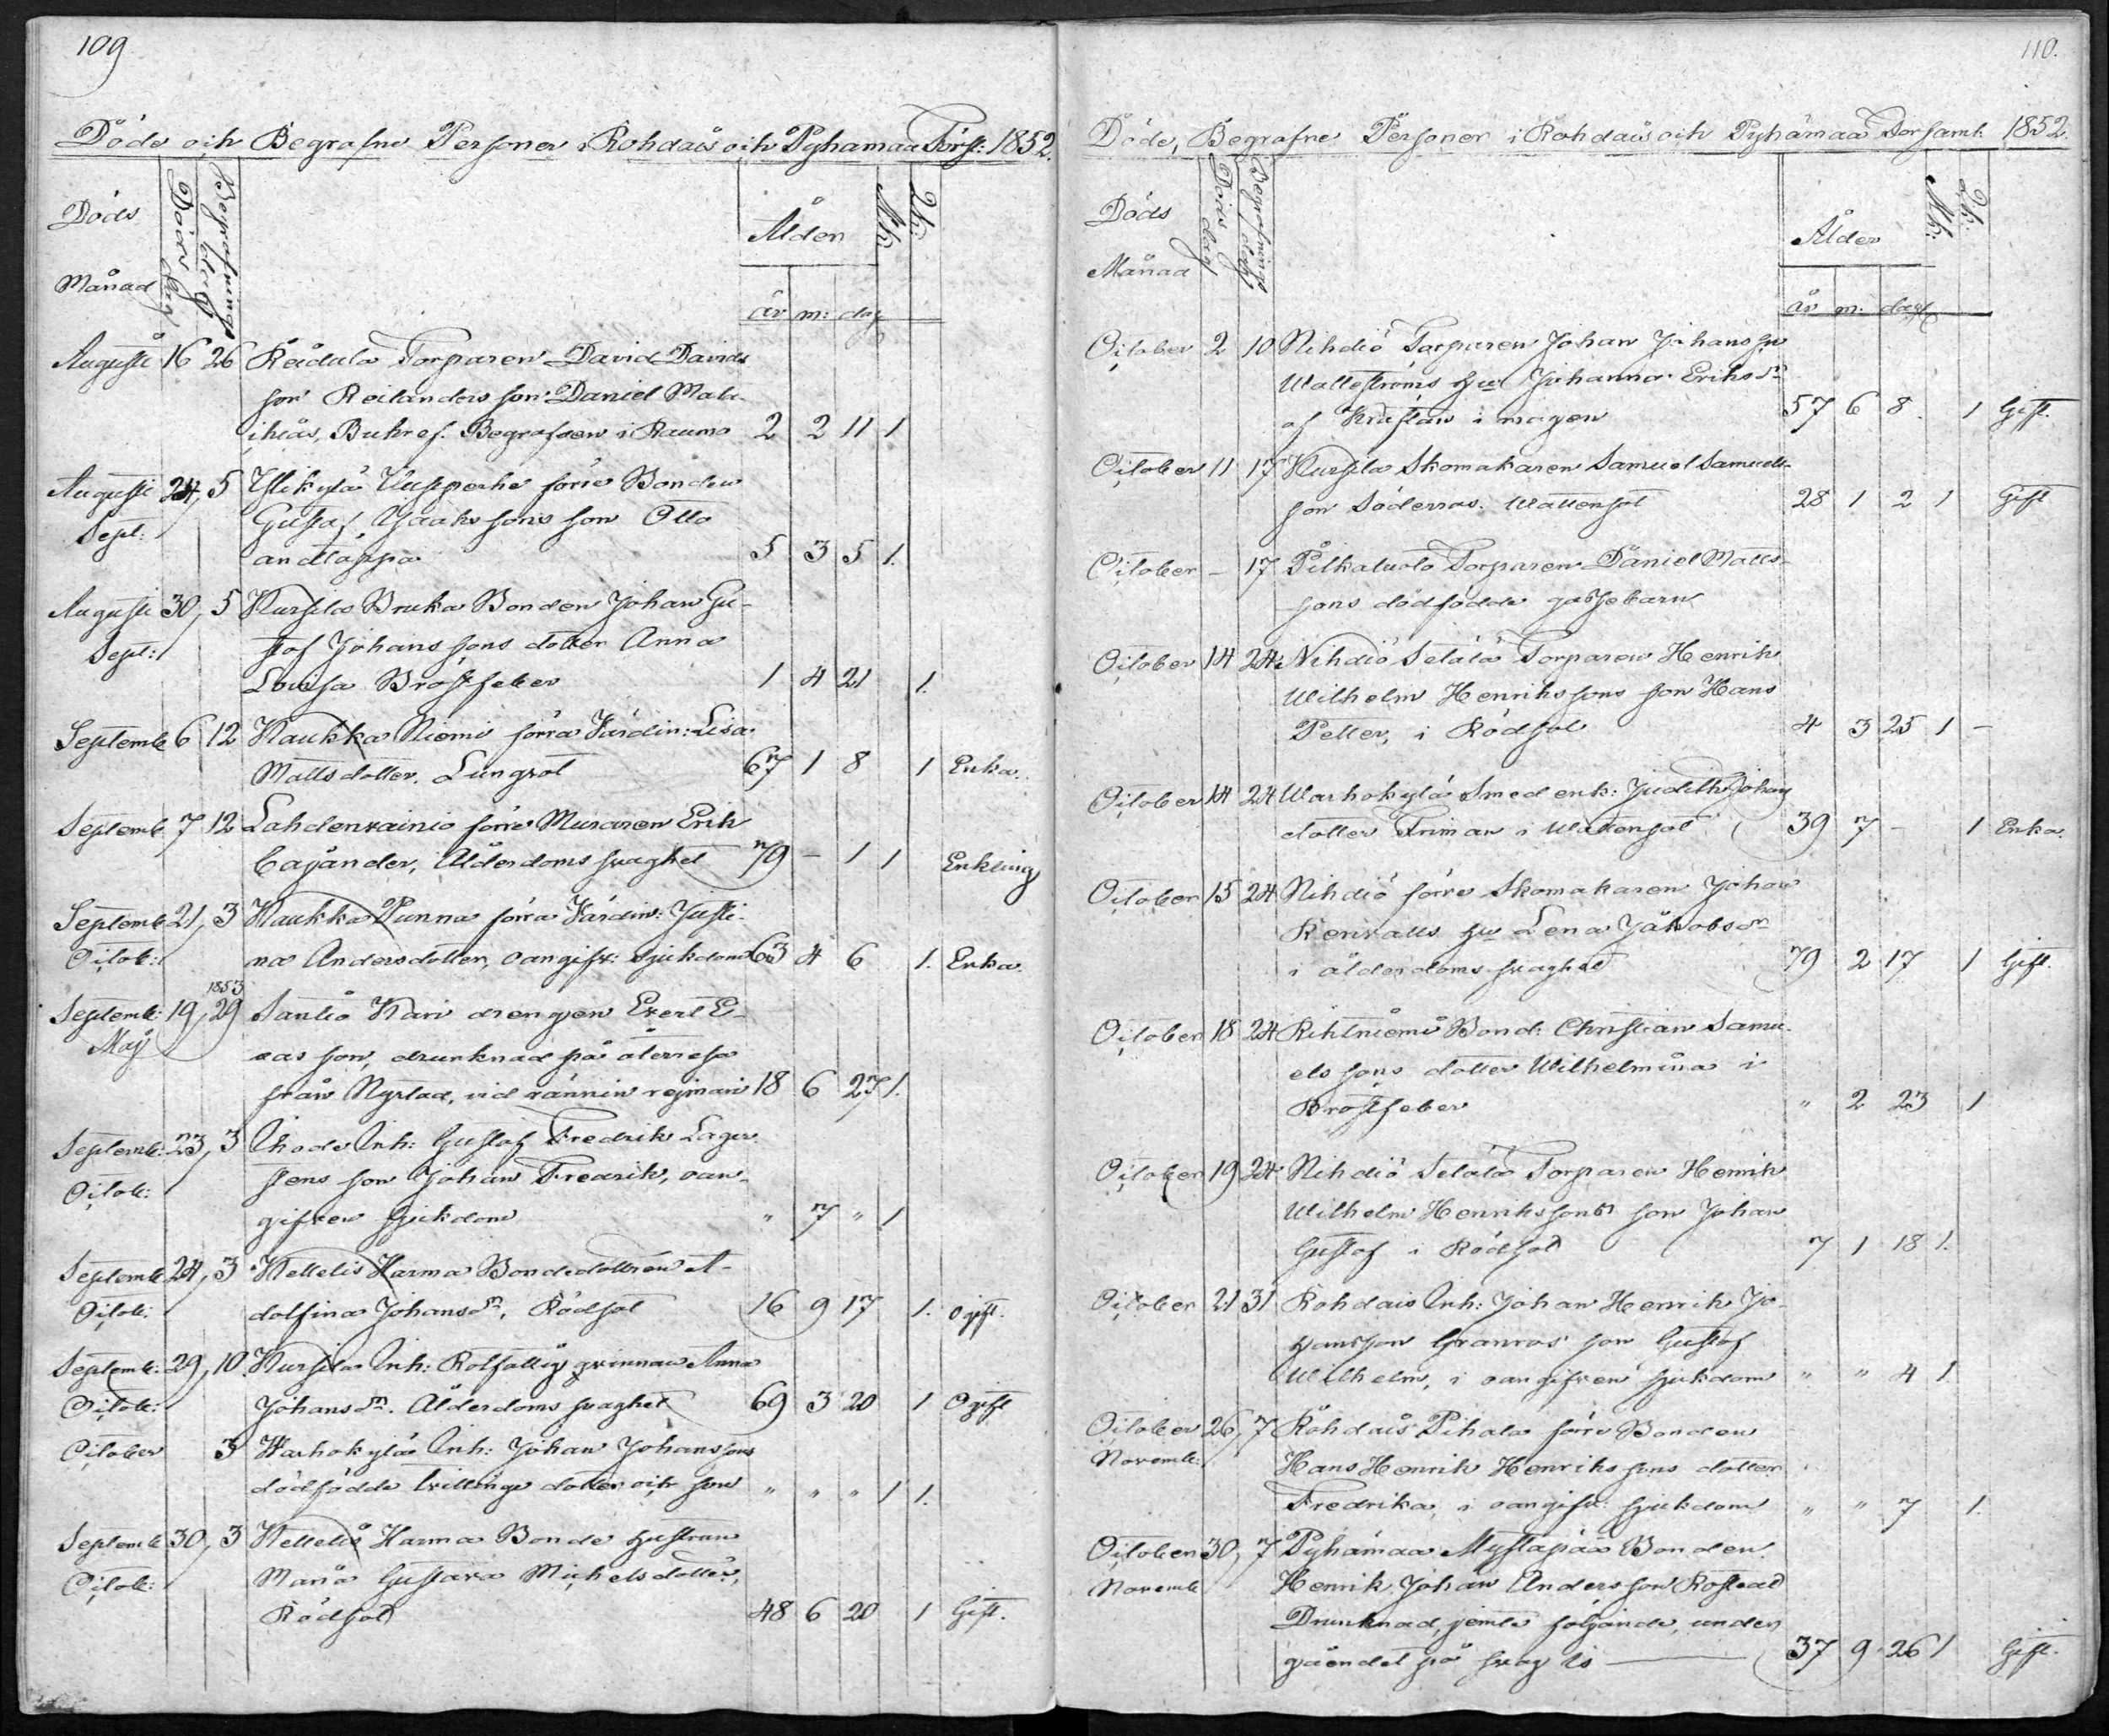 109
Döde och Begrafne Personer i Rohdais och Pyhämaa Förs: 1852.
Döds Månad
Döds dag
Begrafnings dag
Ålder
år m: dag
Mk:
Qk:
Augusti 16 26 Rädula Torparen David Davids
son Reilanders son Daniel Mala-
ikias, Bukref. Begrafven i Raumo 2 2 11 1
Augusti 24, 5 Ylikylä Uusperhe förre Bonden
Sept: Gustaf Isaakssons son Otto
andtäppa 5 3 5 1.
Augusti 30, 5 Kursila Bruka Bonden Johan Gu-
Sept: staf Johanssons dotter Anna
Lovisa Bröstfeber 1 4 21 1.
Septemb 6 12 Kaukka Niemi förra Värdin: Lisa
Mattsdotter. Lungsot 67 1 8 1 Enka.
Septemb 7 12 Lahdenvainio förre Muraren Erik
Cajander, Ålderdoms svaghet 79 - 1 1 Enkling
Septemb 21, 3 Kaukka Nunna förra Värdin: Justi-
Octob: na Andersdotter, oangifv: Sjukdom 63 4 6 1. Enka
1853
Septemb: 19, 29 Santiö Kari drengen Evert E-
Maj sas son, drunknad på återresa
från Nystad, vid rännin rejmari 18 6 27 1.
Septemb: 23, 3 Ihode Inh: Gustaf Fredrik Lager-
Octob: stens son Johan Fredrik, oan-
gifven sjukdom " 7 " 1
Septemb 24, 3 Kettelis Harma Bondedottren A-
Octob: dolfina Johansdr, Rödsot 16 9 17 1. ogift.
Septemb: 29, 10. Kursila Inh: Rotfattig qvinnan Anna
Octob: Johansdr. Ålderdoms svaghet 69 3 20 1 Ogift
October 3 Warhokylä Inh: Johan Johanssons
dödfödde tvillinge dotter och son " " " 1 1.
Septemb 30, 3 Kettelis Harma Bonde hustrun
Octob: Maria Gustava Michelsdotter,
Rödsot 48 6 20 1 Gift.
110.
Döde, Begrafne Personer i Rohdais och Pyhämaa Församl: 1852.
Döds Månad
Döds dag
Begrafnings dag
Ålder
år m: dag
Mk:
Qk:
October 2 10 Nihdiö Torparen Johan Johansson
Wallströms hu Johanna Eriksdr
af Kräftan i magen 57 6 8. 1 Gift.
October 11 17 Kursila Skomakaren Samuel Samuels-
son Söderros. Wattensot 28 1 2 1 Gift
October - 17 Pitkaluoto Torparen Daniel Matts-
sons dödfödde gossebarn
October 14 24 Nihdiö Setälä Torparen Henrik
Wilhelm Henrikssons son Hans
Petter, i Rödsot 4 3 25 1 -
October 14 24 Warhokylä Smed enk: Judith Johans
dotter Friman i Wattensot 39 7 - 1 Enka.
October 15 24 Nihdiö förre Skomakaren Johan
Renvalls hu Lena Jakobsdr
i ålderdoms svaghet 79 2 17 1 Gift.
October 18 24 Rihtniemi Bond: Christian Samu-
elssons dotter Wilhelmina i
Bröstfeber " 2 23 1
October 19 24 Nihdiö Setälä Torparen Henrik
Wilhelm Henrikssons son Johan
Gustaf i Rödsot 7 1 18 1.
October 21 31 Rohdais Inh: Johan Henrik Jo-
hansson Granros son Gustaf
Wilhelm, i oangifven sjukdom " " 4 1
October 26, 7 Rohdais Pihala förre Bonden
Novemb: Hans Henrik Henrikssons dotter
Fredrika, i oangifv: sjukdom " " 7 1.
October 30, 7 Pyhämaa Mystäpää Bonden
Novemb Henrik Johan Andersson Rostedt
Drunknad, jemte följande, under
gåendet på svag is 37 9 26 1 Gift.